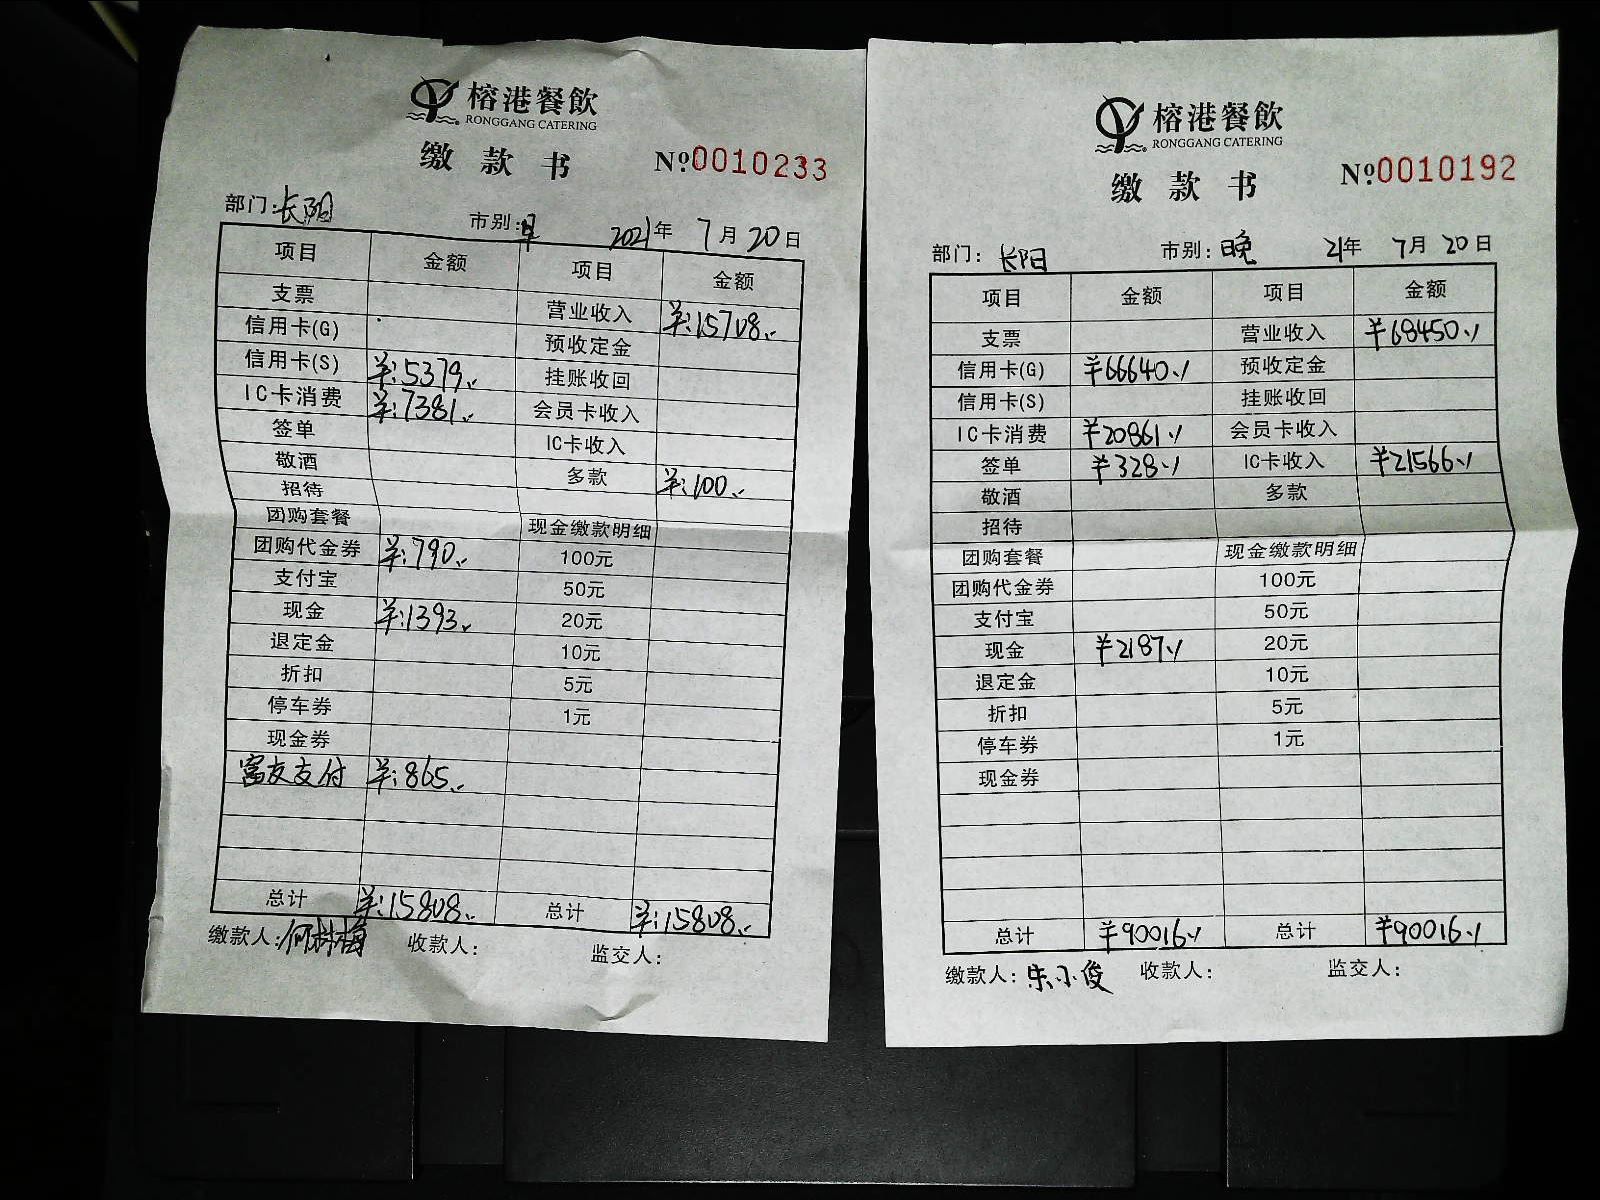 榕港餐飲
RONGGANG CATERING
缴款书 №0010233
部门:长阳 市别:早 2021年 7月20日
项目 金额 项目 金额
支票 营业收入 ¥:15708.
信用卡(G) 预收定金
信用卡(S) ¥:5379. 挂账收回
IC卡消费 ¥:7381. 会员卡收入
签单 IC卡收入
敬酒 多款 ¥:100.
招待
团购套餐 现金缴款明细
团购代金券 ¥:790. 100元
支付宝 50元
现金 ¥:1393. 20元
退定金 10元
折扣 5元
停车券 1元
现金券
富友支付 ¥:865.
总计 ¥:15808. 总计 ¥:15808.
缴款人:何树梅 收款人: 监交人:
榕港餐飲
RONGGANG CATERING
缴款书 №0010192
部门:长阳 市别:晚 21年 7月20日
项目 金额 项目 金额
支票 营业收入 ¥68450.
信用卡(G) ¥66640. 预收定金
信用卡(S) 挂账收回
IC卡消费 ¥20861. 会员卡收入
签单 ¥328. IC卡收入 ¥21566.
敬酒 多款
招待
团购套餐 现金缴款明细
团购代金券 100元
支付宝 50元
现金 ¥2187. 20元
退定金 10元
折扣 5元
停车券 1元
现金券
总计 ¥90016. 总计 ¥90016.
缴款人:朱小俊 收款人: 监交人: